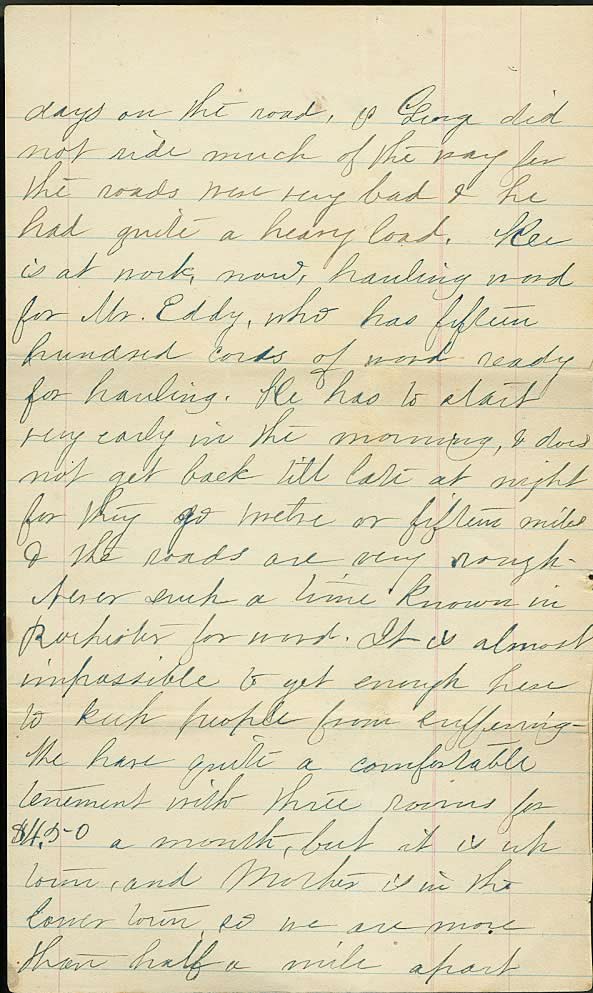 days on the road, & Georg did
not ride much of the way for
the roads were very bad & he
had quite a heavy load. He
is at work, now, hauling wood
for Mr. Eddy, who has fifteen
hundred cords of wood ready
for hauling. He has to start
very early in the morning, & does
not get back till late at night
for they go twelve or fifteen miles
& the roads are very rough-
Never such a time known in
Rochester for wood. It is almost
impossible to get enough here
to keep people from suffering-
We have quite a comfortable
tenement with three rooms for
$4.50 a month, but it is up
town, and Mother is in the
lower town, so we are more
than half a mile apart